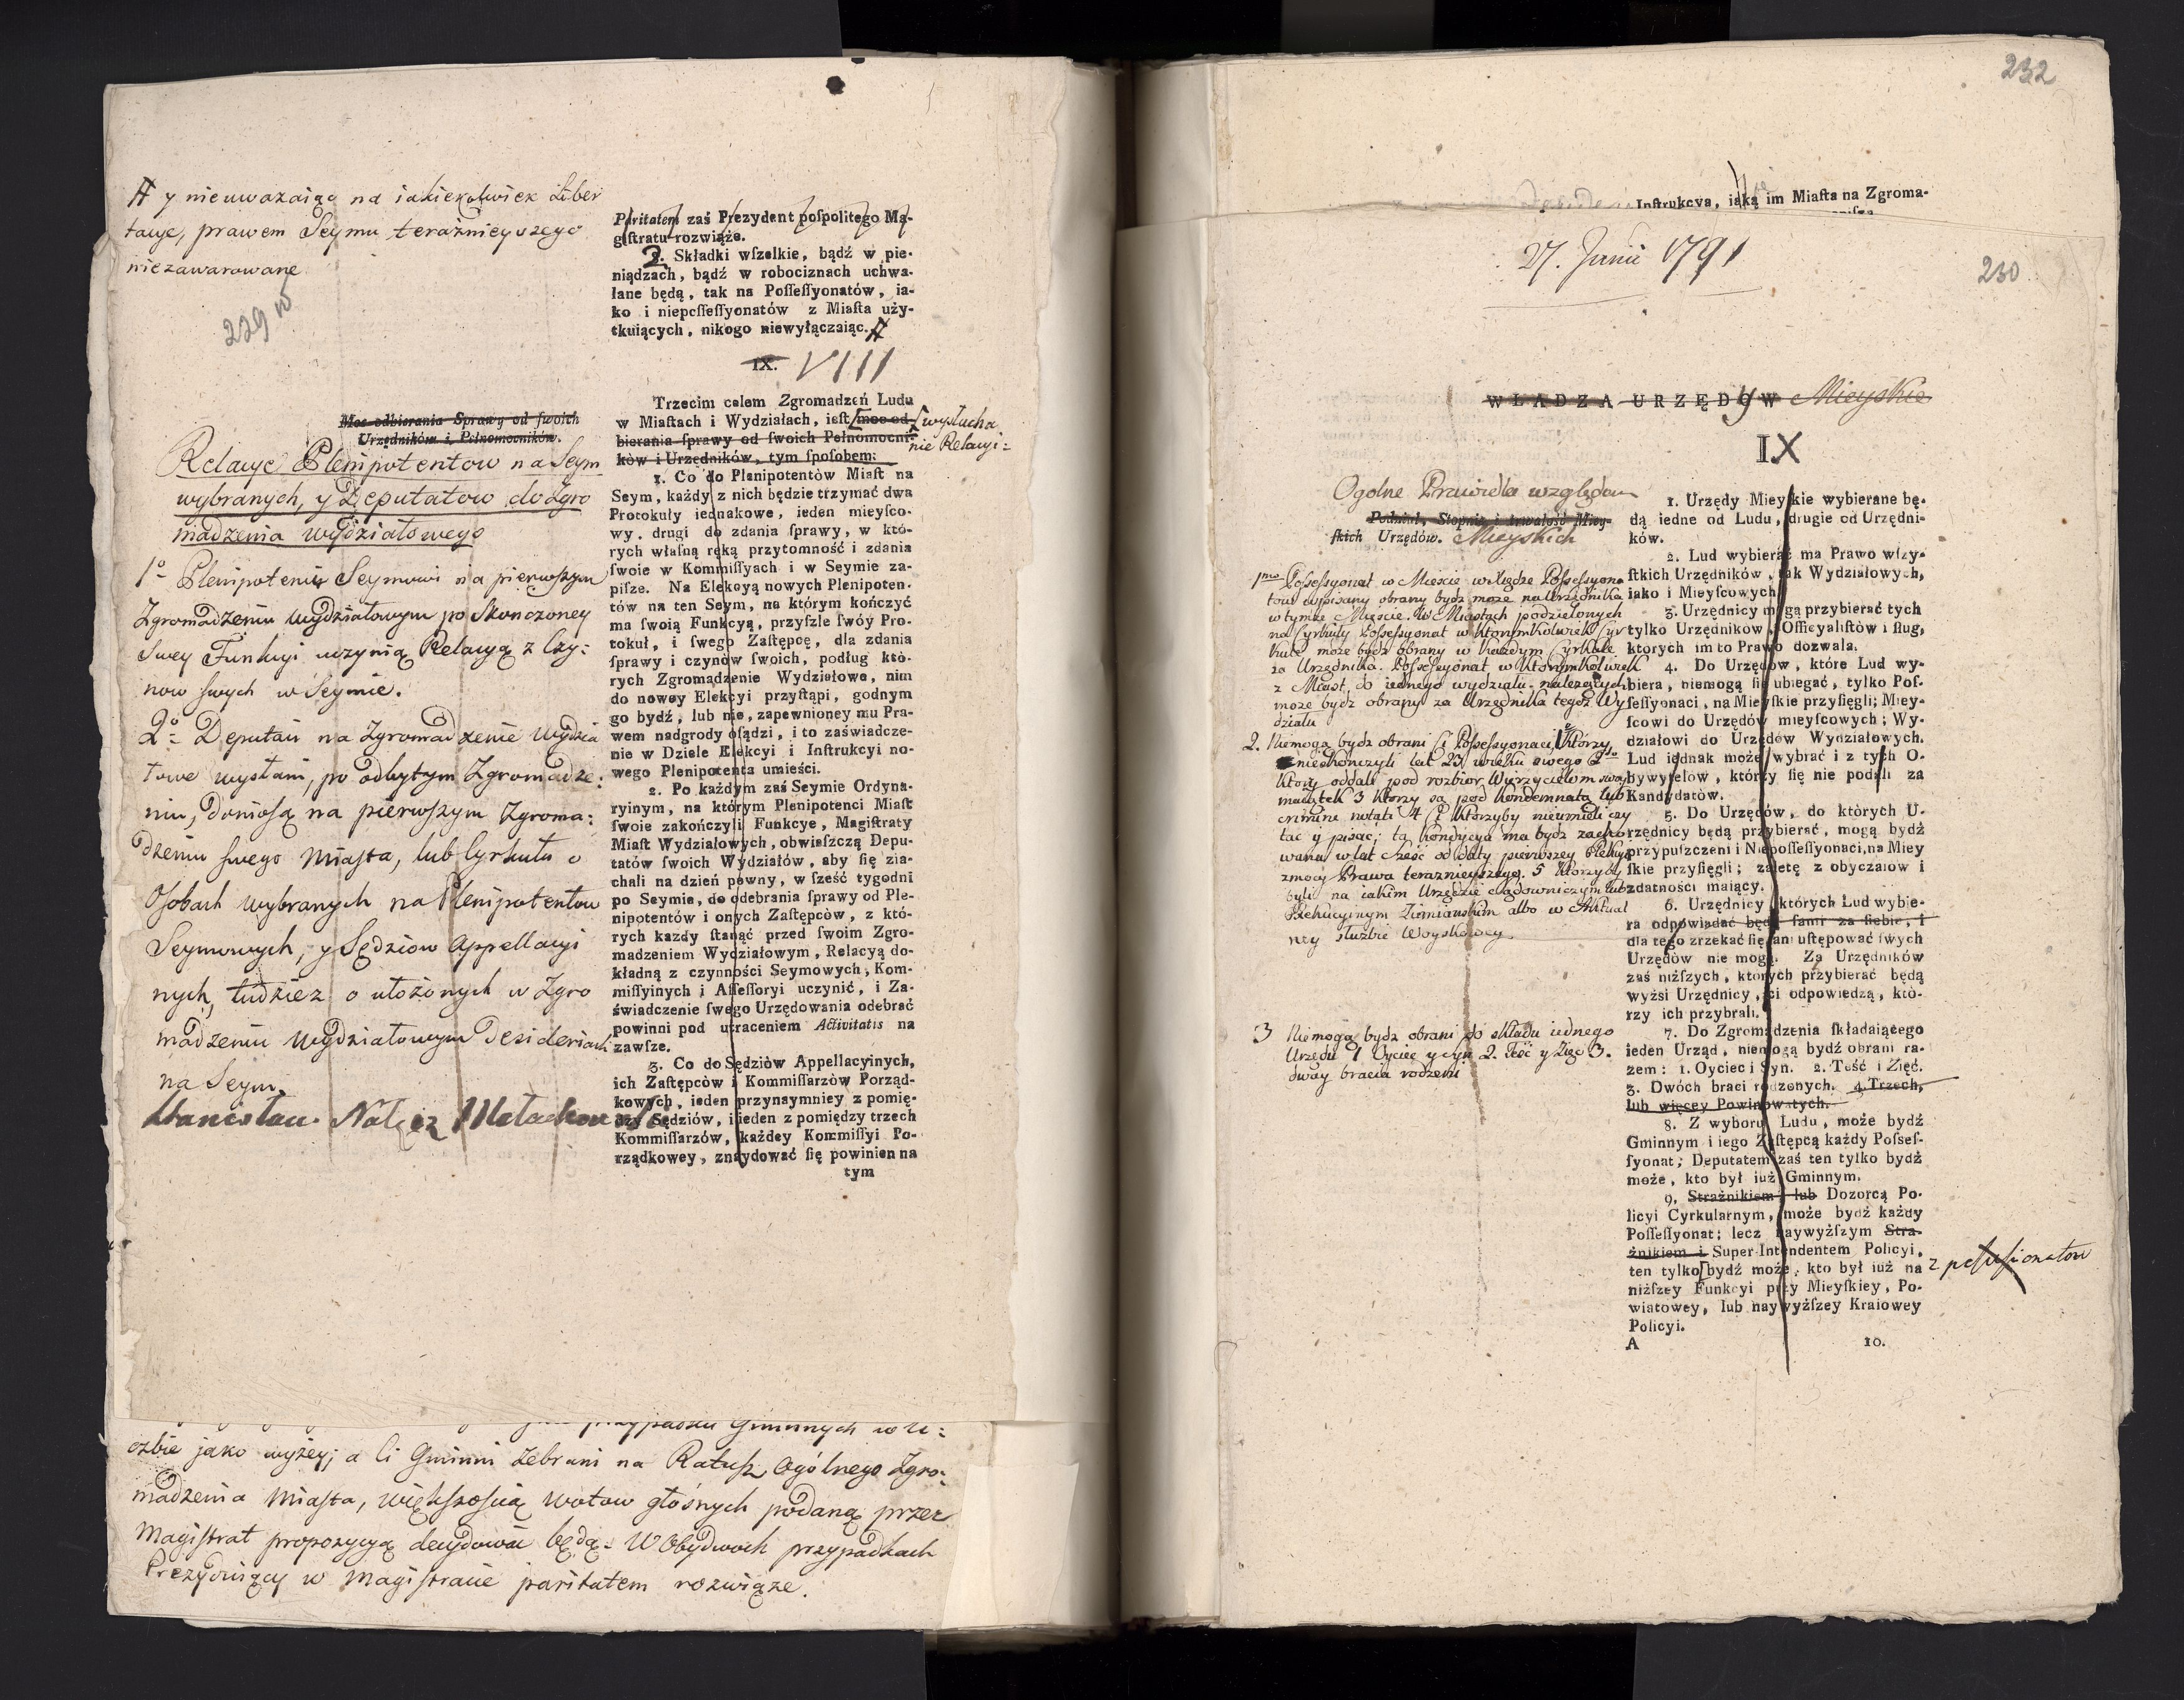 # y nieuwazaiąc na iakiekolwiek Liber
tacye, prawem Seymu teraźnieyszego
niezawarowane.
229 v
Paritatem zaś Prezydent poſpolitego Ma-
giſtratu rozwiąże.
2. Składki wſzelkie, bądź w pie-
niądzach, bądź w robociznach uchwa-
lane będą, tak na Poſſeſſyonatów, ia-
ko i niepoſſeſſyonatów z Miaſta uży-
tkuiących, nikogo niewyłączaiąc. #
IX. VIII
Moc odbierania Sprawy od ſwoich
Urzędników i Pełnomocników.
Relacye Plenipotentow na Seym
wybranych, y Deputatow do Zgro
madzenia wydziałowego
1o Plenipotenci Seymowi na pierwszym
Zgromadzeniu wydziałowym po skonczoney
swey Funkcyi uczynią Relacyą z Czy:
now swych w Seymie.
2o Deputaci na Zgromadzenie wydzia
łowe wysłani, po odbytym Zgromadze:
niu, doniosą na pierwszym Zgroma:
dzeniu swego Miasta, lub Cyrkułu o
Osobach wybranych na Plenipotentow
Seymowych, y Sędziow Appellacyi
nych, tudzież o ułożonych w Zgro
madzeniu wydziałowym Desideriach
na Seym.
Stanisław Nałęcz Małachowski
Trzecim celem Zgromadzeń Ludu
w Miaſtach i Wydziałach, ieſt [moc od-
bierania ſprawy od ſwoich Pełnomocni-
ków i Urzędników, tym ſpoſobem:
[wysłucha
nie Relacyi:
1. Co do Plenipotentów Miaſt na
Seym, każdy z nich będzie trzymać dwa
Protokuły iednakowe, ieden mieyſco-
wy, drugi do zdania ſprawy, w któ-
rych właſną ręką przytomność i zdania
ſwoie w Kommiſſyach i w Seymie za-
piſze. Na Elekcyą nowych Plenipoten-
tów na ten Seym, na którym kończyć
ma ſwoią Funkcyą, przyſzle ſwóy Pro-
tokuł, i ſwego Zaſtępcę, dla zdania
ſprawy i czynów ſwoich, podług któ-
rych Zgromadzenie Wydziałowe, nim
do nowey Elekcyi przyſtąpi, godnym
go bydź, lub nie, zapewnioney mu Pra-
wem nadgrody oſądzi, i to zaświadcze-
nie w Dziele Elekcyi i Inſtrukcyi no-
wego Plenipotenta umieści.
2. Po każdym zaś Seymie Ordyna-
ryinym, na którym Plenipotenci Miaſt
ſwoie zakończyli Funkcye, Magiſtraty
Miaſt Wydziałowych, obwieſzczą Depu-
tatów ſwoich Wydziałów, aby ſię zia-
chali na dzień pewny, w ſześć tygodni
po Seymie, do odebrania ſprawy od Ple-
nipotentów i onych Zaſtępców, z któ-
rych każdy ſtanąć przed ſwoim Zgro-
madzeniem Wydziałowym, Relacyą do-
kładną z czynności Seymowych, Kom-
miſſyinych i Aſſeſſoryi uczynić, i Za-
świadczenie ſwego Urzędowania odebrać
powinni pod utraceniem Activitatis na
zawſze.
3. Co do Sędziów Appellacyinych,
ich Zaſtępców i Kommiſſarzów Porząd-
kowych, ieden przynaymniey z pomię-
dzy Sędziów, i ieden z pomiędzy trzech
Kommiſſarzów, każdey Kommiſſyi Po-
rządkowey, znaydować ſię powinien na
tym
przypadku Gminnych w li:
czbie jako wyżey; a Ci Gminni zebrani na Ratusz Ogólnego Zgro:
madzenia Miasta, większością wotow głośnych podaną przez
Magistrat propozycyą decydować będą. W Obydwoch przypadkach
Prezyduiący w Magistracie paritatem rozwiąze.
232
Inſtrukcya, iaką im Miaſta na Zgroma-
27. Junii 1791
230
WŁADZA URZĘDÓW Mieyskie
IX
Ogolne Prawidła względem
Podział, Stopnie i trwałość Miey-
ſkich Urzędów. Mieyskich
1mo Possessyonat w Mieście w Xiędze Possessyona
tow wypisany obrany bydz moze na Urzędnika
w tymze Mieście. W Miastach podzielonych
na Cyrkuły Possessyonat w ktorymkolwiek Cyr
kule może bydz obrany w kazdym Cyrkule
za Urzędnika. Possessyonat w ktorymkolwiek
z Miast do iednego wydziału należących
może bydz obrany za Urzędnika tegoż Wy
działu
2. Niemogą bydz obrani 1 Possessyonaci, ktorzy
nieskonczyli lat 23 wieku swego 2do
ktorzy oddali pod rozbior Wierzycielom swoy
maiątek 3 ktorzy są pod kondemnatą lub
crimine notati 4 Ci ktorzyby nieumieli czy
tać y pisać; ta kondycya ma bydz zacho
wana w lat sześć od daty pierwszey Elekcyi
zmocy Prawa teraznieyszego. 5 ktorzyby
byli na iakim Urzędzie Sądowniczym lub
Exekucyinym Ziemianskim albo w Aktual
ney służbie Woyskowey.
3 Niemogą bydz obrani do składu iednego
Urzędu 1 Oyciec y syn 2. Teść y Zięć 3.
dway bracia rodzeni
1. Urzędy Mieyſkie wybierane bę-
dą iedne od Ludu, drugie od Urzędni-
ków.
2. Lud wybierać ma Prawo wſzy-
ſtkich Urzędników, tak Wydziałowych,
iako i Mieyſcowych.
3. Urzędnicy mogą przybierać tych
tylko Urzędników, Officyaliſtów i ſług,
których im to Prawo dozwala.
4. Do Urzędów, które Lud wy-
biera, niemogą ſię ubiegać, tylko Poſ-
ſeſſyonaci, na Mieyſkie przyſięgli; Miey-
ſcowi do Urzędów mieyſcowych; Wy-
działowi do Urzędów Wydziałowych.
Lud iednak może wybrać i z tych O-
bywatelów, którzy ſię nie podali za
Kandydatów.
5. Do Urzędów, do których U-
rzędnicy będą przybierać, mogą bydź
przypuſzczeni i Niepoſſeſſyonaci, na Miey
ſkie przyſięgli; zaletę z obyczaiow i
zdatności maiący.
6. Urzędnicy, których Lud wybie-
ra odpowiadać będą ſami za ſiebie, i
dla tego zrzekać ſię ani uſtępować ſwych
Urzędów nie mogą. Za Urzędników
zaś niżſzych, których przybierać będą
wyżsi Urzędnicy, ci odpowiedzą, któ-
rzy ich przybrali.
7. Do Zgromadzenia ſkładaiącego
ieden Urząd, niemogą bydź obrani ra-
zem: 1. Oyciec i Syn. 2. Teść i Zięć.
3. Dwóch braci rodzonych. 4. Trzech,
lub więcey Powinowatych.
8. Z wyboru Ludu, może bydź
Gminnym i iego Zaſtępcą każdy Poſseſ-
ſyonat; Deputatem zaś ten tylko bydź
może, kto był iuż Gminnym.
9. Strażnikiem lub Dozorcą Po-
licyi Cyrkularnym, może bydź każdy
Poſſeſſyonat; lecz naywyżſzym Stra-
żnikiem i Super-Intendentem Policyi,
ten tylko [bydź może, kto był iuż na
niżſzey Funkcyi przy Mieyſkiey, Po-
wiatowey, lub naywyżſzey Kraiowey
Policyi.
z possessionatow
A 10.